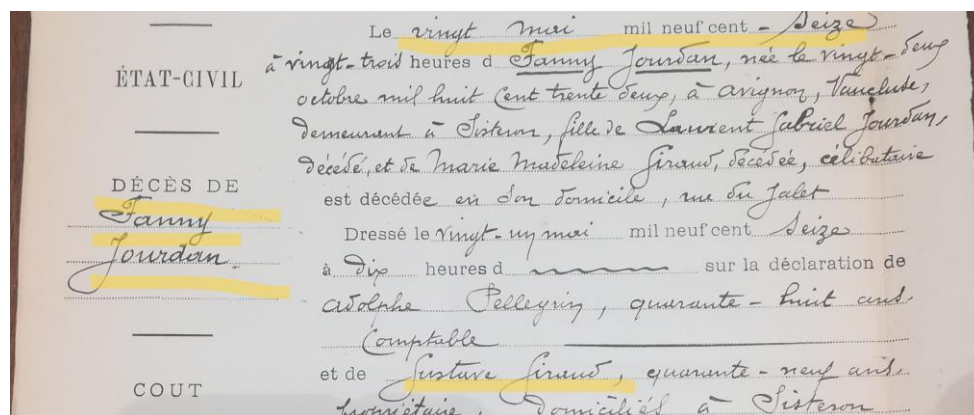 ÉTAT-CIVIL
DÉCÈS DE
Fanny
Jourdan
COUT
Le vingt mai mil neuf cent - Seize
à vingt-trois heures d Fanny Jourdan, née le vingt-deux
octobre mil huit Cent trente deux, à avignon, Vaucluse,
demeurant à Sisteron, fille de Laurent Gabriel Jourdan,
décédé, et de Marie Madeleine Giraud, décédée, célibataire
est décédée en son domicile, rue du Jalet
Dressé le Vingt-un mai mil neuf cent Seize
à dix heures d sur la déclaration de
adolphe Pellegrin, quarante-huit ans.
Comptable
et de Gustave Giraud, quarante-neuf ans.
propriétaire, domiciliés à Sisteron